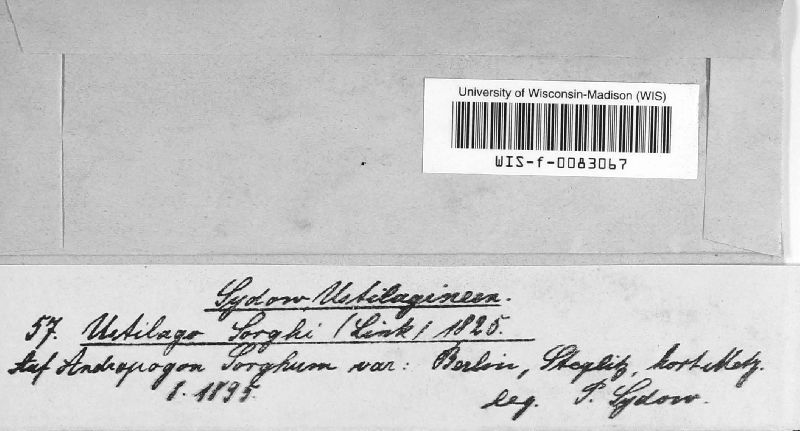 University of Wisconsin-Madison (WIS)
WIS-f-0083067
Sydow Ustilagineen.
57. Ustilago Sorghi (Link) 1825.
Auf Andropogon Sorghum var: Berlin, Steglitz,
1895.
leg. P. Sydow.